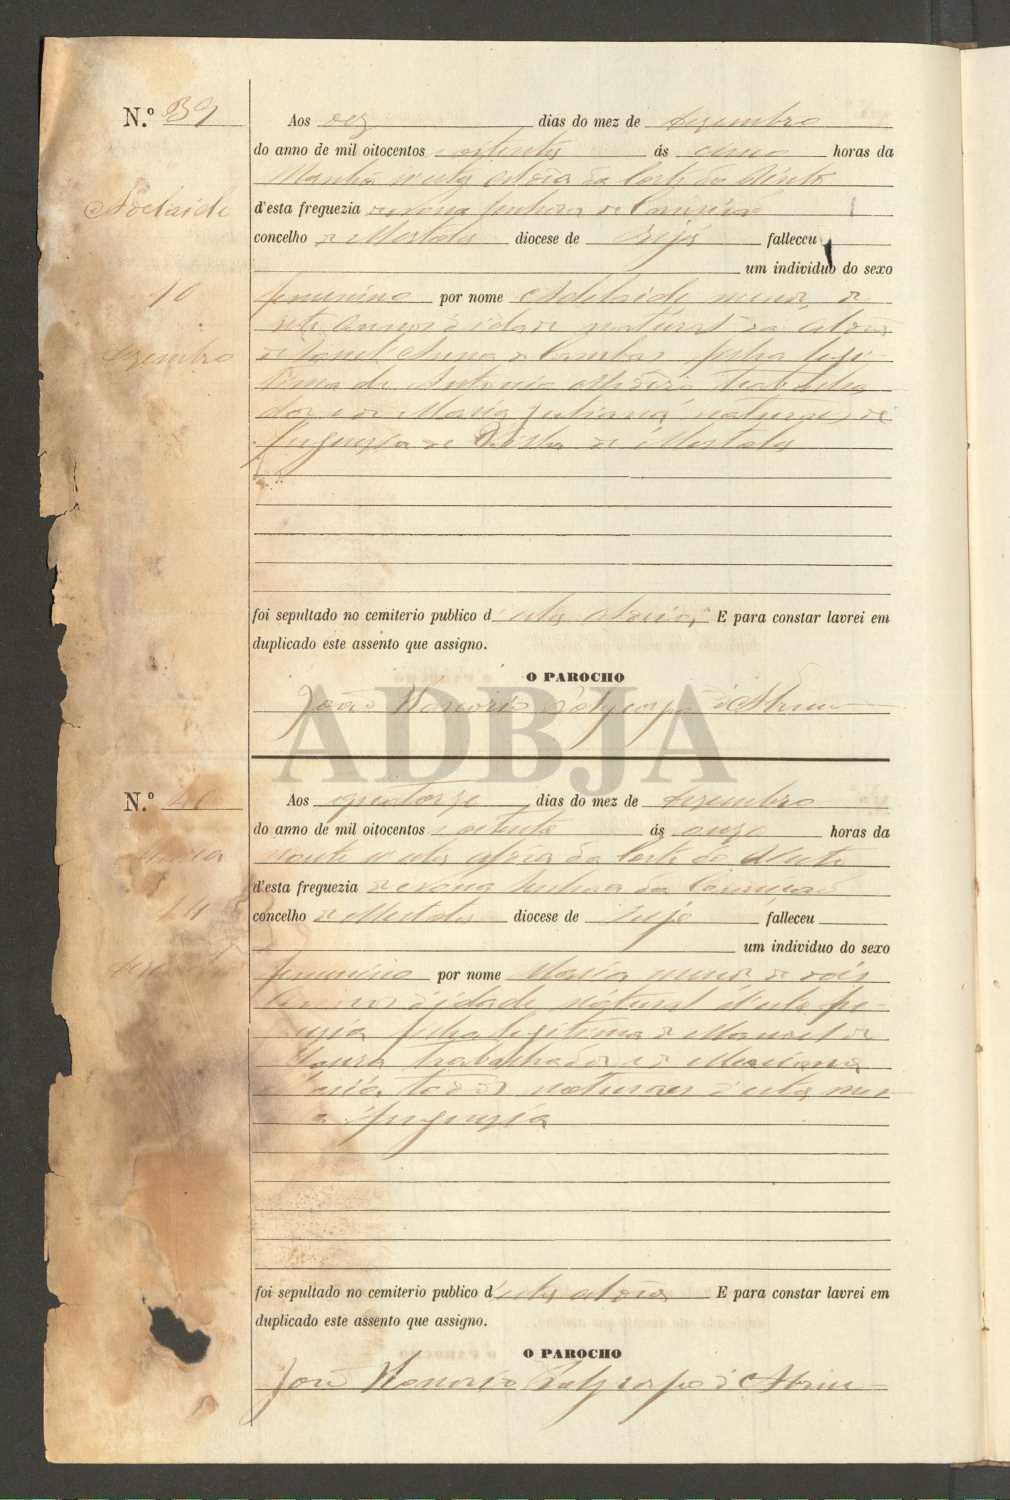 N.º 39
Aos dez dias do mez de Dezembro
do anno de mil oitocentos oitenta ás cinco horas da
Manhã n'esta aldeia da Corte do Pinto
Adelaide
d'esta freguezia de Nossa Senhora da Conceição
concelho de Mertola diocese de Beja falleceu
um individuo do sexo
10
femenino por nome Adelaide menor de
sete annos d'idade natural da aldeia
Dezembro
de Sant'Anna de Cambas filha legi-
tima de Antonio trabalha
dor e de Maria Juliana naturaes da
freguezia de de Mertola
foi sepultado no cemiterio publico d'esta aldeia. E para constar lavrei em
duplicado este assento que assigno.
O PAROCHO
João Honorio Polycarpo d'Abreu
ADBJA
N.º 40
Aos quatorze dias do mez de Dezembro
do anno de mil oitocentos e oitenta ás onze horas da
Noute n'esta aldeia da Corte do Pinto
Maria
d'esta freguezia de Nossa Senhora da Conceição
14
concelho de Mertola diocese de Beja falleceu
um individuo do sexo
femenino por nome Maria menor de dois
annos d'idade natural d'esta fre-
guezia filha legitima de Manoel de
trabalhador e de Marianna
Maria todos naturaes d'esta mes-
ma freguezia
foi sepultado no cemiterio publico d'esta aldeia E para constar lavrei em
duplicado este assento que assigno.
O PAROCHO
João Honorio Polycarpo d'Abreu